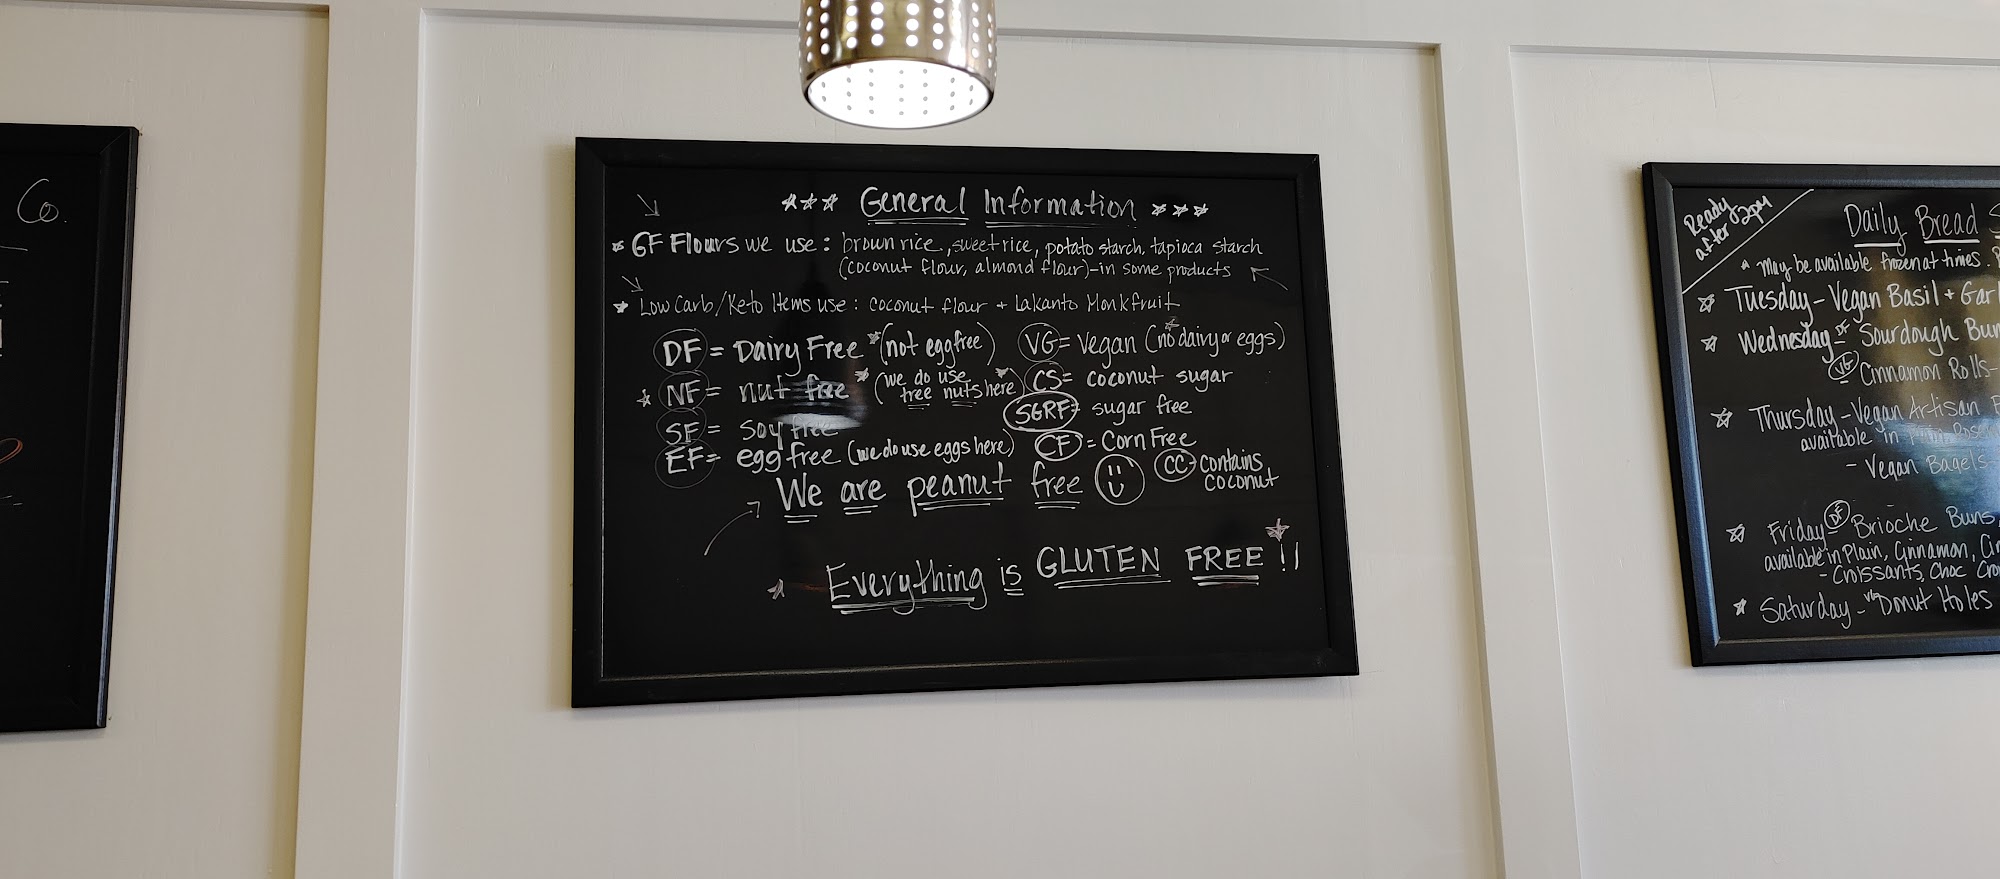 Co.
*** General Information ***
* GF Flours we use: brown rice, sweet rice, potato starch, tapioca starch
(coconut flour, almond flour)-in some products
* Low Carb/Keto Items use: coconut flour + Lakanto Monkfruit
DF = Dairy Free *(not egg free)
VG = Vegan (no dairy or eggs)
* NF = nut free * (we do use tree nuts here)
CS = coconut sugar
SGRF = sugar free
SF = soy free
EF = egg free (we do use eggs here)
CF = Corn Free
CC = contains
coconut
We are peanut free
* Everything is GLUTEN FREE!!
Ready
after 2pm
Daily Bread
* may be available frozen at times.
Tuesday - Vegan Basil +
Wednesday - DF Sourdough
VG Cinnamon Rolls-
Thursday - Vegan Artisan
available in
- Vegan Bagels-
Friday - DF Brioche Buns,
available in Plain, Cinnamon,
- Croissants, Choc
Saturday - VG Donut Holes